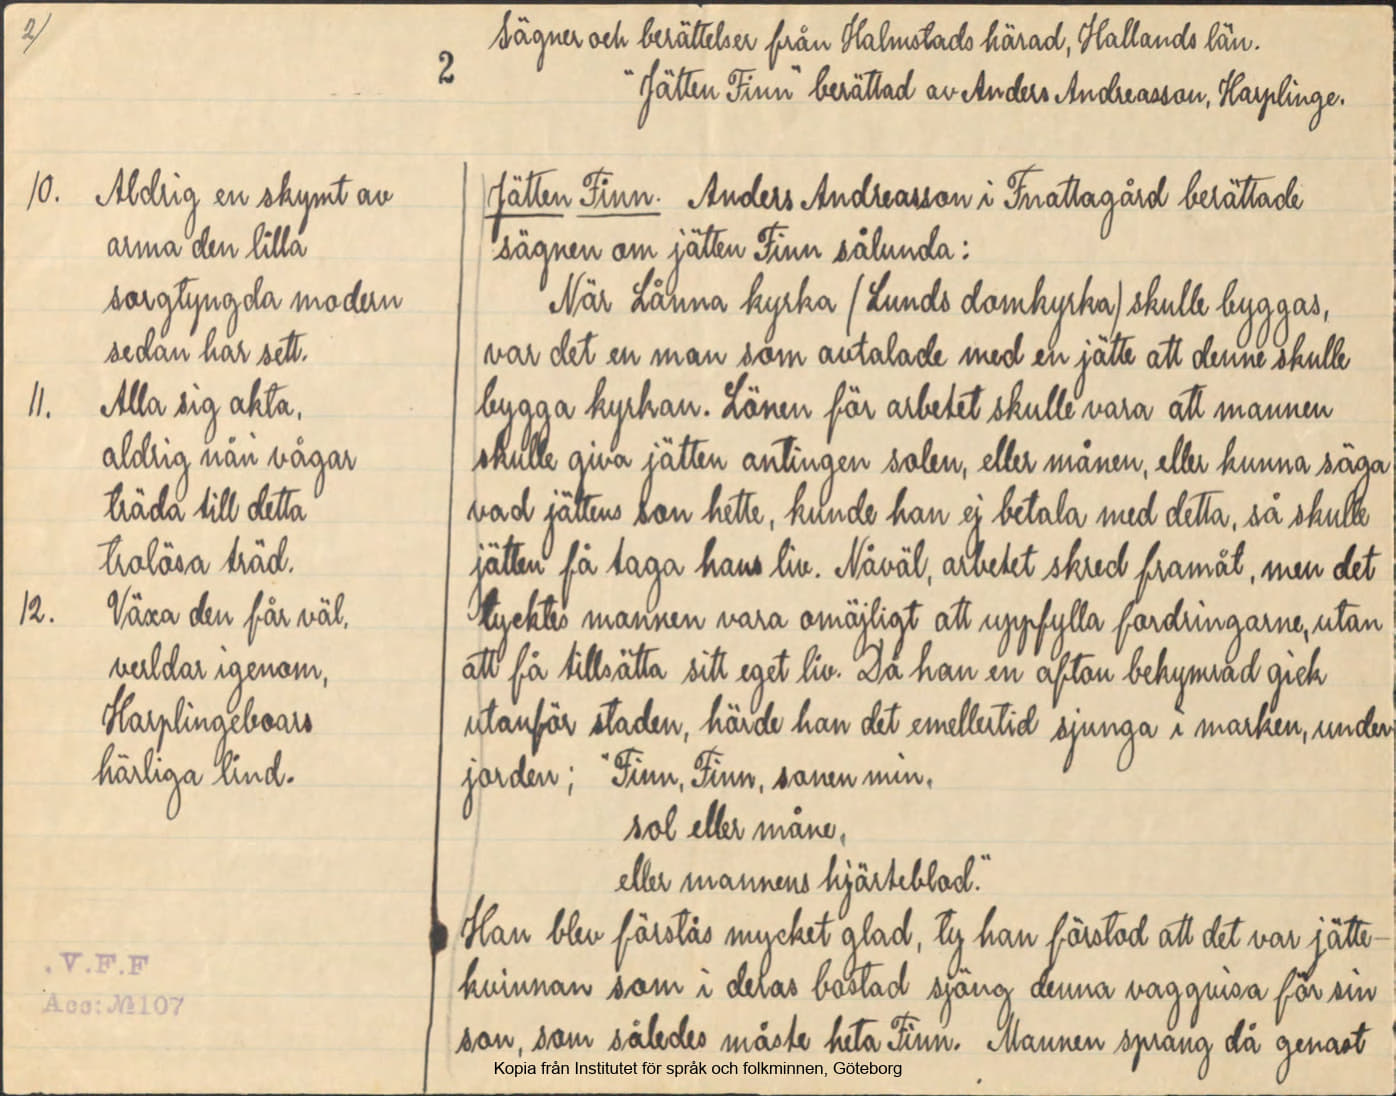 2/
2
Sägner och berättelser från Halmstads härad, Hallands län.
"Jätten Finn" berättad av Anders Andreasson, Harplinge.
10. Aldrig en skymt av
arma den lilla
sorgtyngda modern
sedan har sett.
11. Alla sig akta,
aldrig nån vågar
träda till detta
trolösa träd.
12. Växa den får väl,
verldar igenom,
Harplingeboars
härliga lind.
Jätten Finn. Anders Andreasson i Fnattagård berättade
sägnen om jätten Finn sålunda:
När Lånna kyrka (Lunds domkyrka) skulle byggas,
var det en man som avtalade med en jätte att denne skulle
bygga kyrkan. Lönen för arbetet skulle vara att mannen
skulle giva jätten antingen solen, eller månen, eller kunna säga
vad jättens son hette, kunde han ej betala med detta, så skulle
jätten få taga hans liv. Nåväl, arbetet skred framåt, men det
tycktes mannen vara omöjligt att uppfylla fordringarne, utan
att få tillsätta sitt eget liv. Då han en afton bekymrad gick
utanför staden, hörde han det emellertid sjunga i marken, under
jorden; "Finn, Finn, sonen min,
sol eller måne,
eller mannens hjärteblod."
Han blev förstås mycket glad, ty han förstod att det var jätte-
kvinnan som i deras bostad sjöng denna vaggvisa för sin
son, som således måste heta Finn. Mannen sprang då genast
. V.F.F
Acc: № 107
Kopia från Institutet för språk och folkminnen, Göteborg